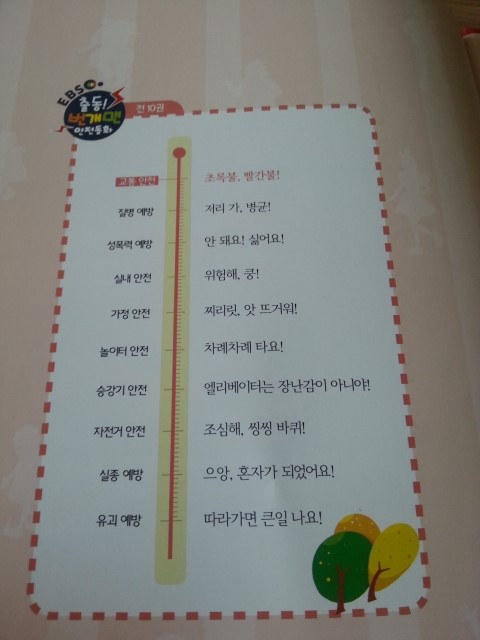 EBS
출동!
번개맨
안전동화
전 10권
교통 안전 초록불, 빨간불!
질병 예방 저리 가, 병균!
성폭력 예방 안 돼요! 싫어요!
실내 안전 위험해, 쿵!
가정 안전 찌리릿, 앗 뜨거워!
놀이터 안전 차례차례 타요!
승강기 안전 엘리베이터는 장난감이 아니야!
자전거 안전 조심해, 씽씽 바퀴!
실종 예방 으앙, 혼자가 되었어요!
유괴 예방 따라가면 큰일 나요!